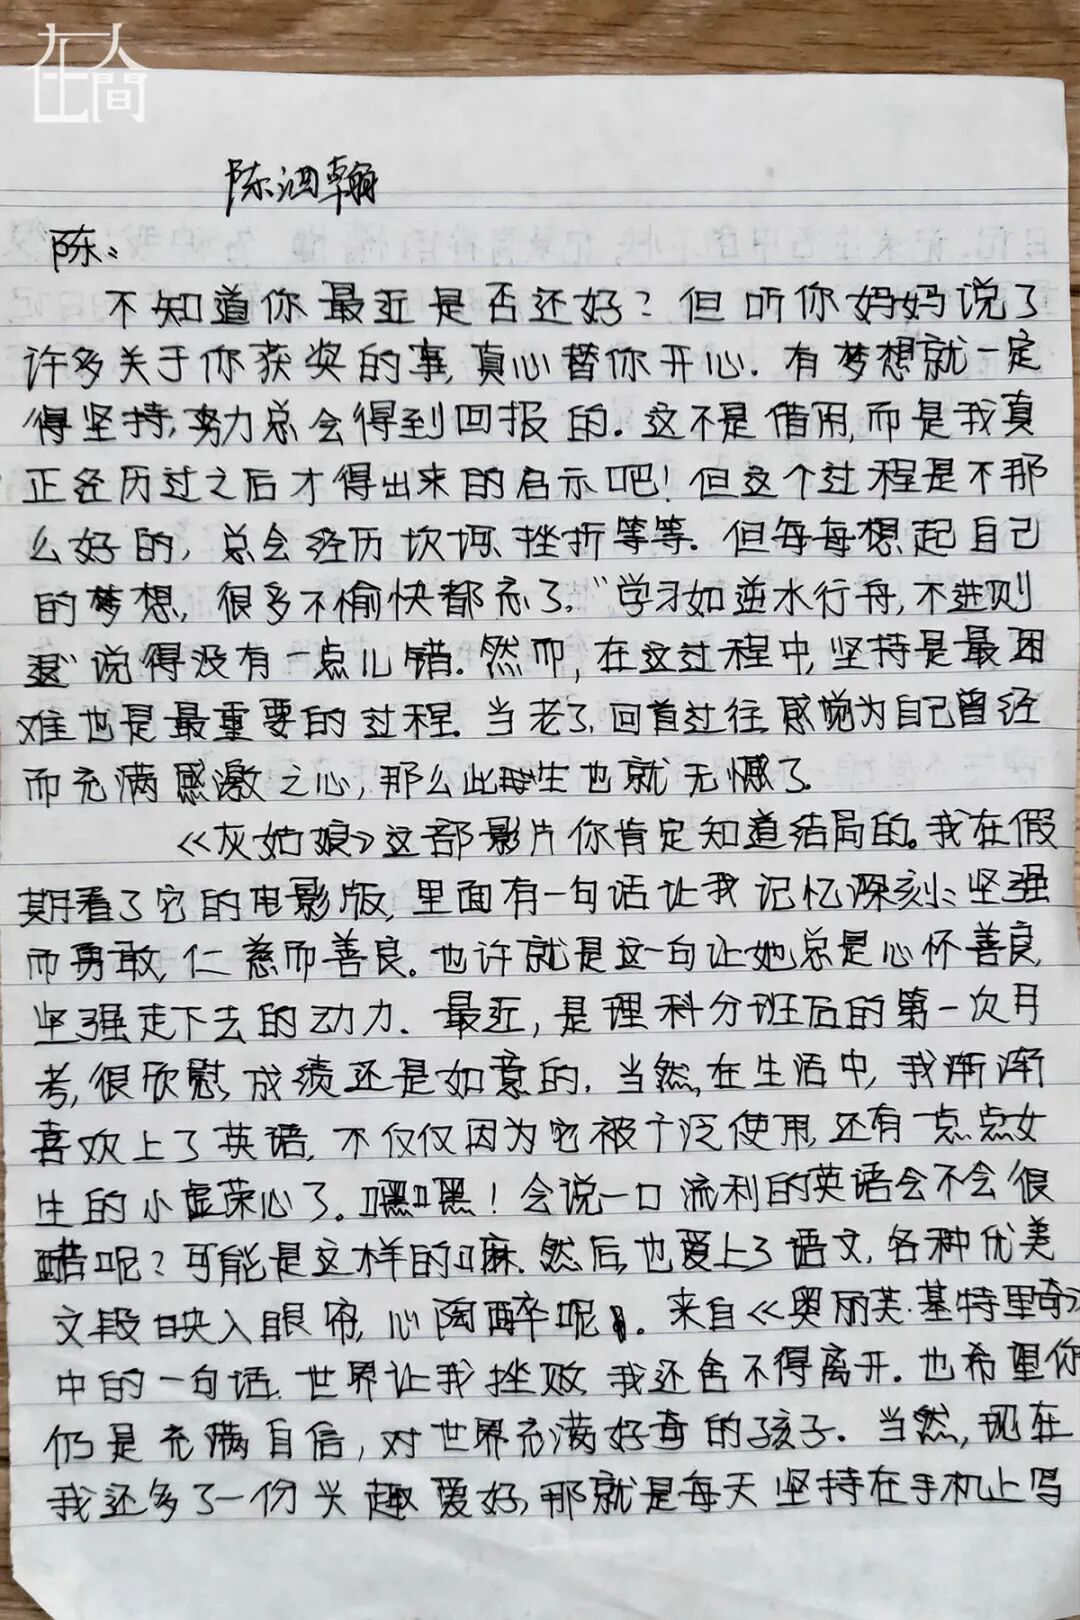 在人間
陈泗翰
陈：
不知道你最近是否还好？但听你妈妈说了
许多关于你获奖的事，真心替你开心．有梦想就一定
得坚持，努力总会得到回报的．这不是借用，而是我真
正经历过之后才得出来的启示吧！但这个过程是不那
么好的，总会经历坎坷、挫折等等．但每每想起自己
的梦想，很多不愉快都忘了．“学习如逆水行舟，不进则
退”说得没有一点儿错．然而，在这过程中，坚持是最困
难也是最重要的过程．当老了，回首过往，感觉为自己曾经
而充满感激之心，那么此生也就无憾了．
《灰姑娘》这部影片你肯定知道结局的。我在假
期看了它的电影版，里面有一句话让我记忆深刻：坚强
而勇敢，仁慈而善良。也许就是这一句让她总是心怀善良，
坚强走下去的动力．最近，是理科分班后的第一次月
考，很欣慰，成绩还是如意的．当然，在生活中，我渐渐
喜欢上了英语，不仅仅因为它被广泛使用，还有一点点女
生的小虚荣心了。嘿嘿！会说一口流利的英语会不会很
酷呢？可能是这样的嘛．然后，也爱上了语文，各种优美
文段映入眼帘，心陶醉呢。来自《奥丽芙·基特里奇》
中的一句话．世界让我挫败，我还舍不得离开．也希望你
仍是充满自信，对世界充满好奇的孩子．当然，现在
我还多了一份兴趣爱好，那就是每天坚持在手机上写